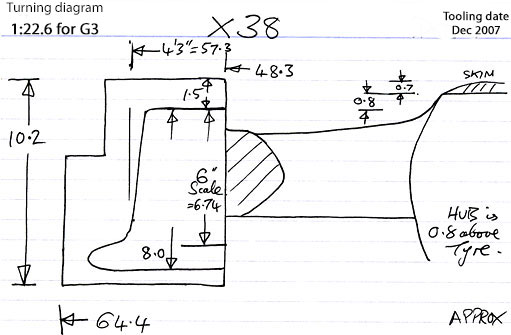 Turning diagram
1:22.6 for G3
X38
Tooling date
Dec 2007
4'3"=57.3
48.3
1.5
0.8
0.7
SKIM
10.2
6"
Scale
=6.74
8.0
HUB is
0.8 above
Tyre.
64.4
APPROX